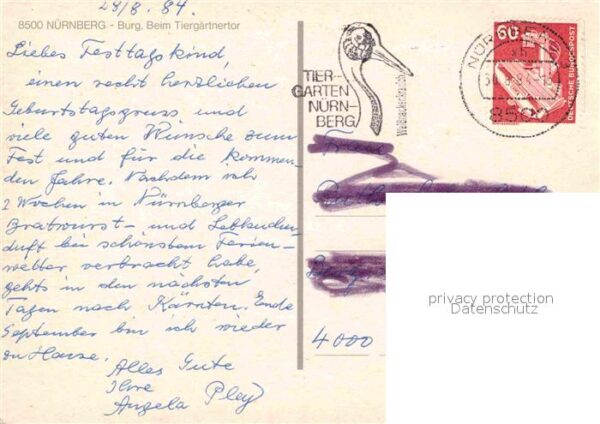 29/8.84.
8500 NÜRNBERG - Burg, Beim Tiergärtnertor
Liebes Festtagskind,
einen recht herzlichen
Geburtstagsgruss und
viele guten Wünsche zum
Fest und für die kommen-
den Jahre. Nachdem ich
2 Wochen in Nürnberger
Bratwurst- und Lebkuchen
duft bei schönstem Ferien-
wetter verbracht habe,
gehts in den nächsten
Tagen nach Kärnten. Ende
September bin ich wieder
zu Hause.
Alles Gute
Ihre
Angela Pley
TIER-
GARTEN
NÜRN-
BERG
60
DEUTSCHE BUNDESPOST
8500
4000
privacy protection
Datenschutz